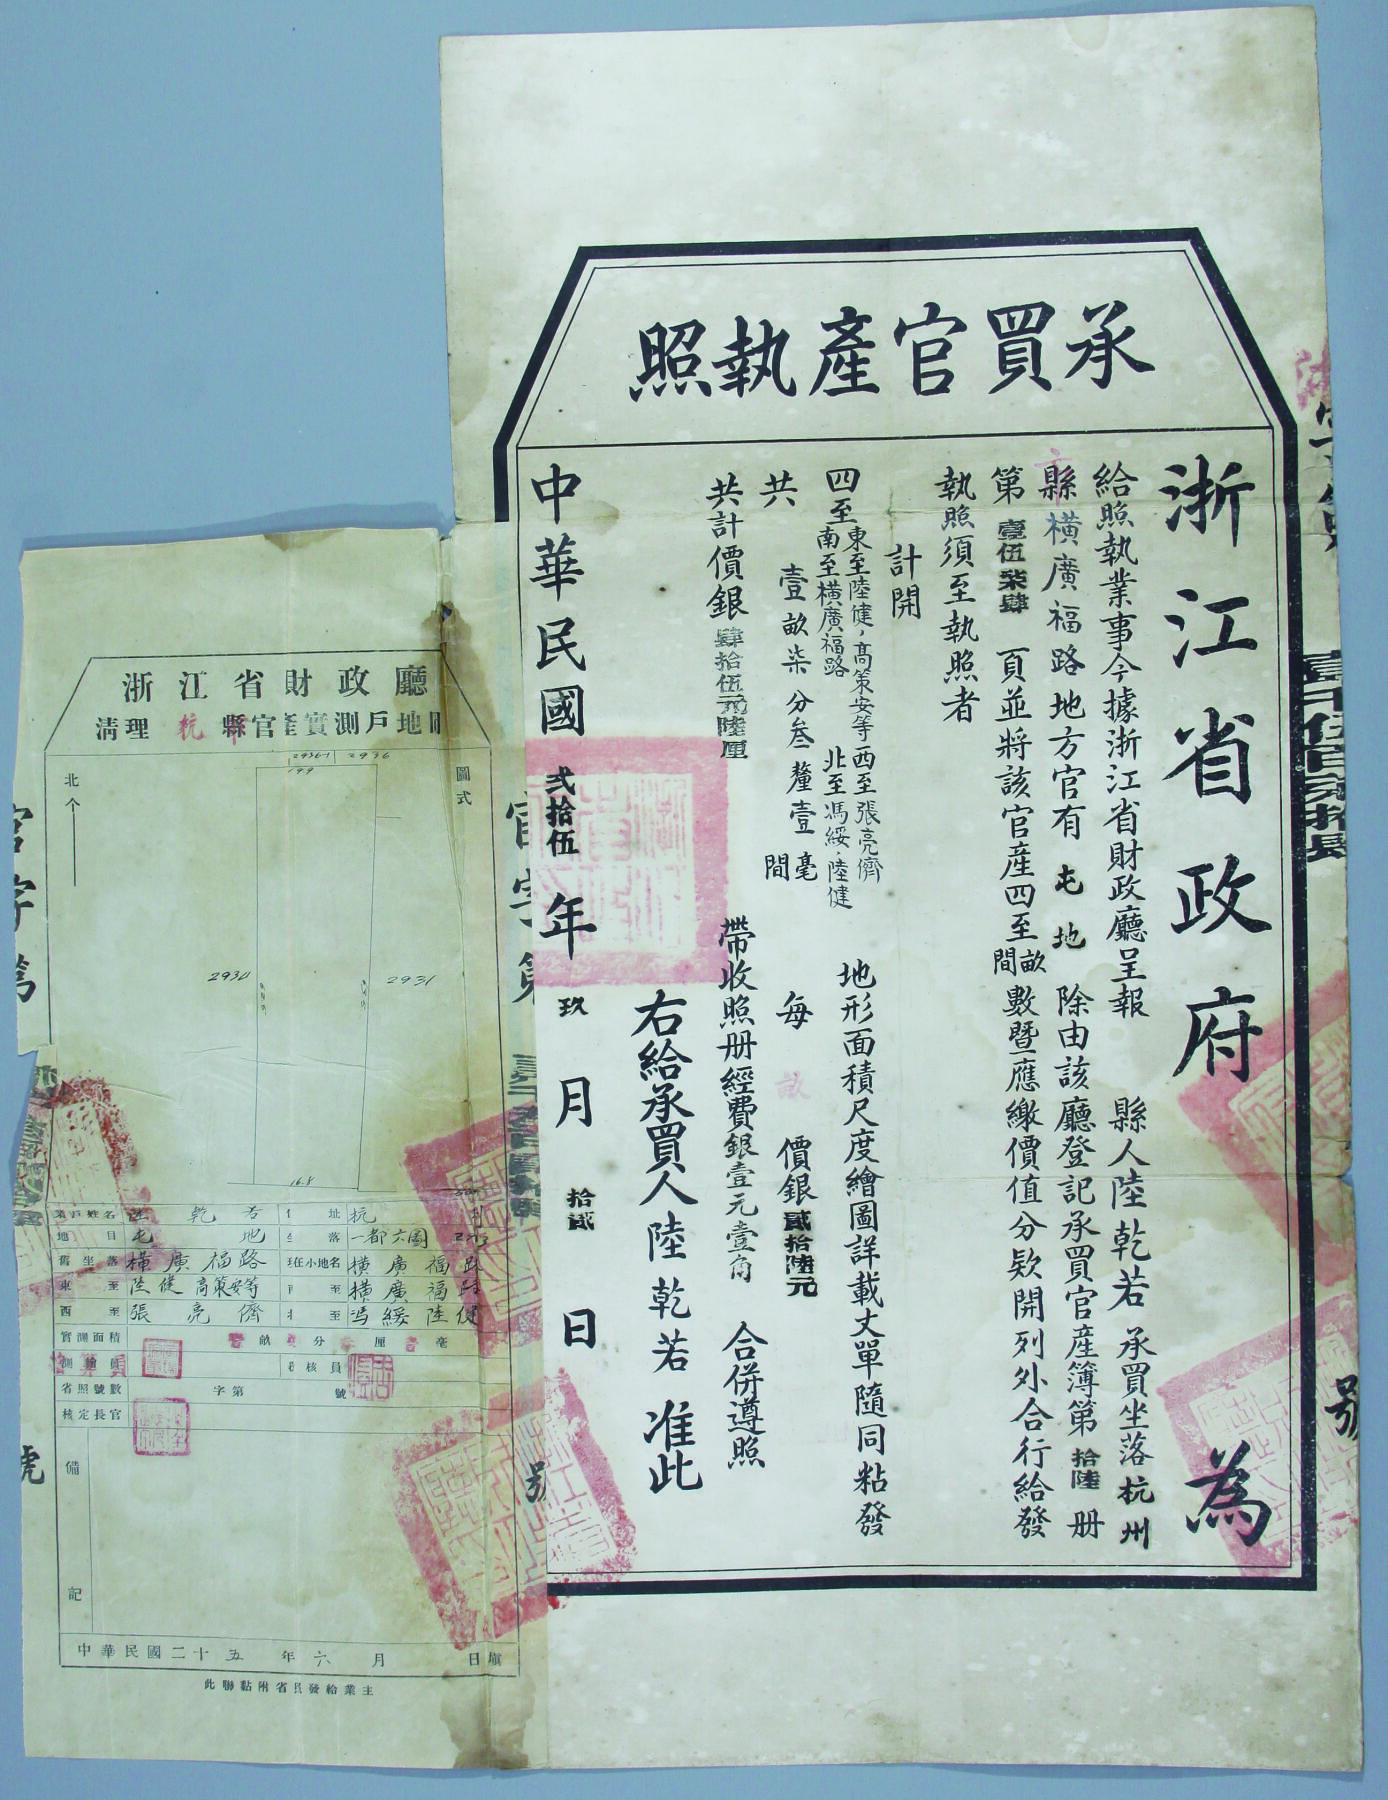 承買官產執照
浙江省政府 為
給照執業事今據浙江省財政廳呈報 縣人陸乾若承買坐落杭州
市
縣橫廣福路地方官有屯地除由該廳登記承買官產簿第拾陸册
第壹伍柒肆頁並將該官產四至畝間數暨應繳價值分欵開列外合行給發
執照須至執照者
計開
四至東至陸健,高策安等西至張亮儕
南至橫廣福路 北至馮綏,陸健
地形面積尺度繪圖詳載丈單隨同粘發
共 壹畝柒分叁釐壹毫間 每畝價銀貳拾陸元
共計價銀肆拾伍元陸厘 帶收照册經費銀壹元壹角 合併遵照
右給承買人陸乾若准此
中華民國貳拾伍年玖月拾貳日
號
官字第
號
浙江省財政廳
清理杭縣官產實測戶地圖
市
圖式
北
2936-1 2936
19.9
2934
2931
16.8
業戶姓名 陸乾若 住址 杭
地目 屯地 坐落 一都六圖
舊坐落 橫廣福路 現在小地名 橫廣福路
東至 陸健 高策安等 南至 橫廣福路
西至 張亮儕 北至 馮綏 陸健
實測面積 畝 分 厘 毫
測繪員 覆核員
省照號數 字第 號
核定長官
備記
中華民國二十五年六月 日填
此聯黏附省照發給業主
官字第
號